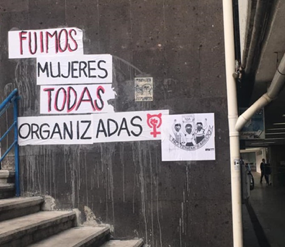 FUIMOS
MUJERES
TODAS
ORGANIZADAS